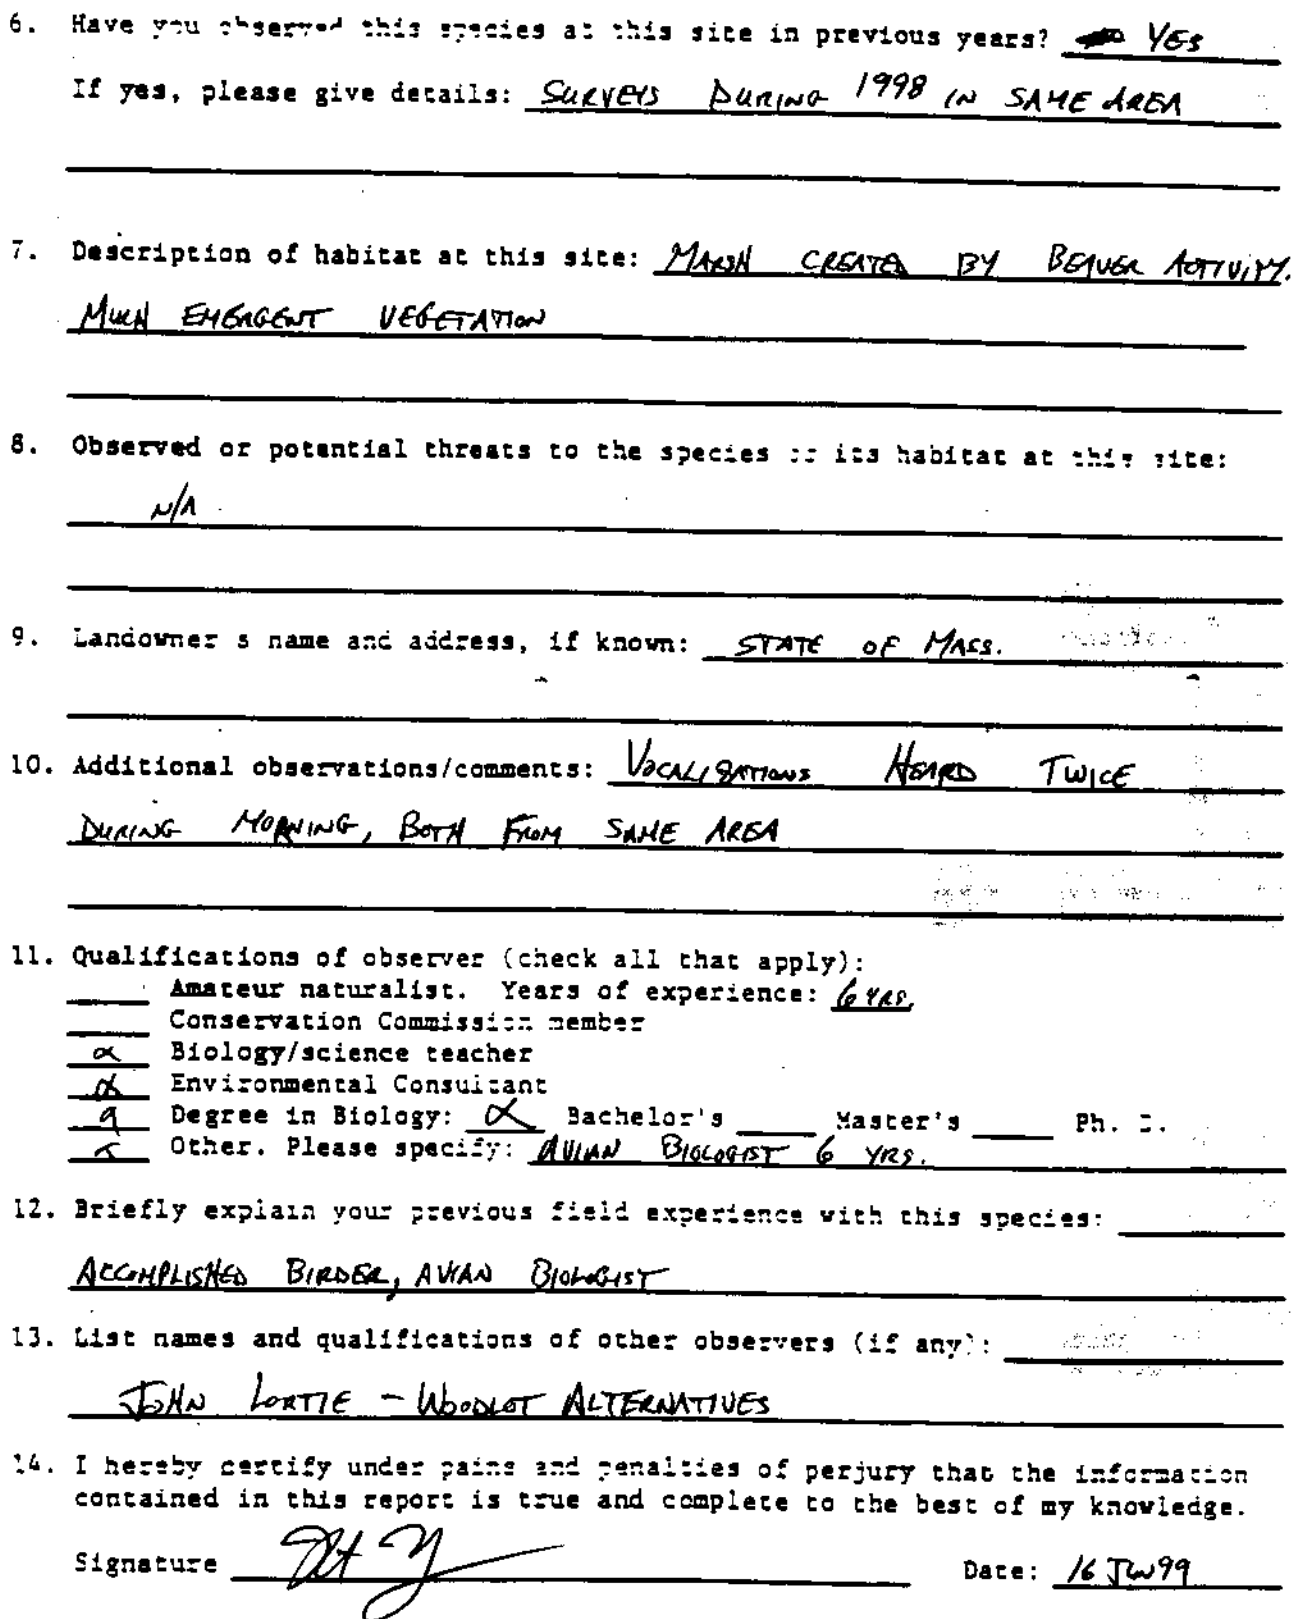 6. Have you observed this species at this site in previous years? YES
If yes, please give details: SURVEYS DURING 1998 IN SAME AREA
7. Description of habitat at this site: MARSH CREATED BY BEAVER ACTIVITY.
MUCH EMERGENT VEGETATION
8. Observed or potential threats to the species or its habitat at this site:
N/A
9. Landowner s name and address, if known: STATE OF MASS.
10. Additional observations/comments: VOCALIZATIONS HEARD TWICE
DURING MORNING, BOTH FROM SAME AREA
11. Qualifications of observer (check all that apply):
Amateur naturalist. Years of experience: 6 YRS.
Conservation Commission member
Biology/science teacher
Environmental Consultant
Degree in Biology: Bachelor's Master's Ph. D.
Other. Please specify: AVIAN BIOLOGIST 6 YRS.
12. Briefly explain your previous field experience with this species:
ACCOMPLISHED BIRDER, AVIAN BIOLOGIST
13. List names and qualifications of other observers (if any):
JOHN LORTIE - WOODLOT ALTERNATIVES
14. I hereby certify under pains and penalties of perjury that the information
contained in this report is true and complete to the best of my knowledge.
Signature Date: 16 JUN 99